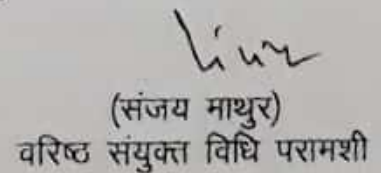 (संजय माथुर)
वरिष्ठ संयुक्त विधि परामशी